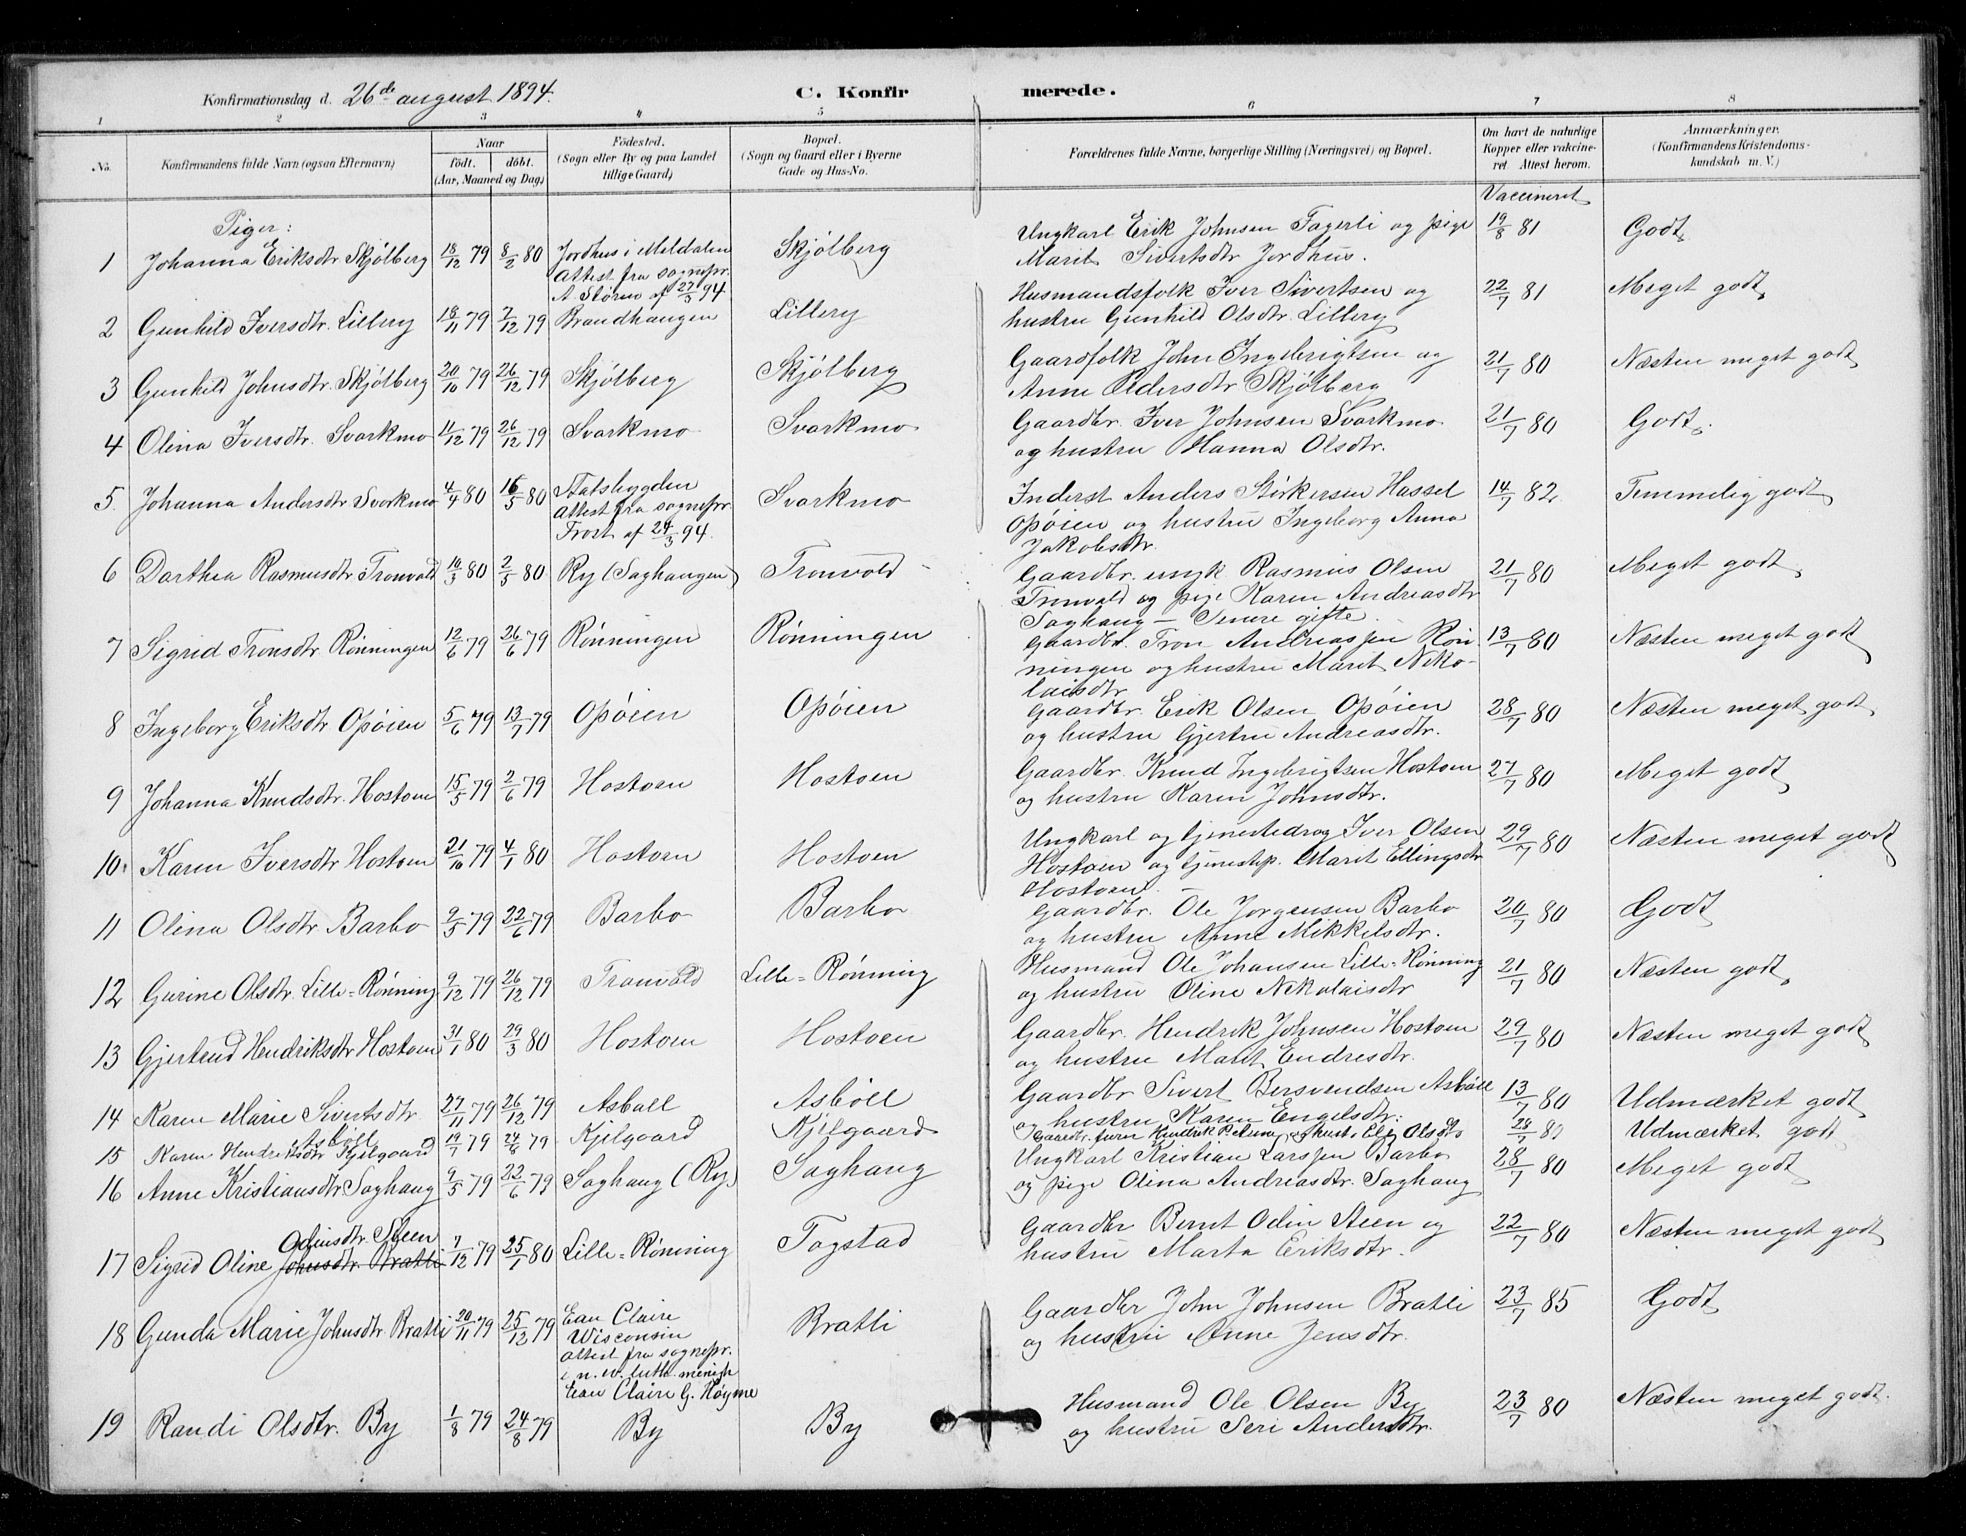 Konfirmationsdag d. 26de august 1894.
C. Konfirmerede.
1 2 3 4 5 6 7 8
No. | Konfirmandens fulde Navn (ogsaa Efternavn) | Naar født. døbt. (Aar, Maaned og Dag) | Fødested. (Sogn eller By og paa Landet tillige Gaard) | Bopæl. (Sogn og Gaard eller i Byerne Gade og Hus-No. | Forældrenes fulde Navne, borgerlige Stilling (Næringsvei) og Bopæl. | Om havt de naturlige Kopper eller vakcineret. Attest herom. | Anmærkninger. (Konfirmandens Kristendomskundskab m. V.)
Piger:
Vaccineret
1 Johanna Eriksdtr Skjølberg 18/12 79 8/2 80 Jordhus i Meldalen Attest fra sognepr. A Støren af 27/3 94 Skjølberg Ungkarl Erik Johnsen Fagerli og pige Marit Sivertsdtr Jordhus. 19/8 81 Godt
2 Gunhild Iversdtr. Lillery 18/11 79 7/12 79 Brandhaugen Lillery Husmandsfolk Iver Sivertsen og hustru Gunhild Olsdtr. Lillery 22/7 81 Meget godt
3 Gunhild Johnsdtr. Skjølberg 20/10 79 26/12 79 Skjølberg Skjølberg Gaardfolk John Ingebrigtsen og Anne Oldersdtr Skjølberg 21/7 80 Næsten meget godt
4 Olina Iversdtr. Svarkmo 11/12 79 26/12 79 Svarkmo Svarkmo Gaardbr. Iver Johnsen Svarkmo og hustru Hanna Olsdtr. 21/7 80 Godt
5. Johanna Andersdtr Svorkmo 4/4 80 16/5 80 Statsbygden Attest fra sognepr. Frost af 24/3 94. Svarkmo Inderst Anders Størkersen Hassel Opøien og hustru Ingeborg Anna Jakobsdtr. 14/7 82. Temmelig godt
6 Dorthea Rasmusdtr Tronvold 10/3 80 2/5 80 Ry (Saghaugen) Tronvold Gaardbr. ungk Rasmus Olsen Tronvold og pige Karen Andreasdtr Saghaug – Senere gifte. 21/7 80 Meget godt
7 Sigrid Tronsdtr. Rønningen 12/6 79 26/6 79 Rønningen Rønningen Gaardbr. Tron Andreassen Rønningen og hustru Marit Nikolaisdtr 13/7 80 Næsten meget godt
8 Ingeborg Eriksdtr Opøien 5/6 79 13/7 79 Opøien Opøien Gaardbr. Erik Olsen Opøien og hustru Gjertru Andreasdtr. 28/7 80 Næsten meget godt
9 Johanna Knudsdtr. Hostoen 15/5 79 2/6 79 Hostoen Hostoen Gaardbr. Knud Ingebrigtsen Hostoen og hustru Karen Johnsdtr. 27/7 80 Meget godt
10. Karen Iversdtr Hostoen 21/10 79 4/1 80 Hostoen Hostoen Ungkarl og tjenestedrag Iver Olsen Hostoen og tjenestep. Marit Ellingsdtr Hostoen. 29/7 80 Næsten meget godt
11 Olina Olsdtr Barbo 9/5 79 22/6 79 Barbo Barbo Gaardbr. Ole Jørgensen Barbo og hustru Anne Mikkelsdtr. 20/7 80 Godt
12 Gurine Olsdtr. Lille-Rønning 9/12 79 26/12 79 Tronvold Lille-Rønning Husmand Ole Johansen Lille-Rønning og hustru Oline Nikolaisdtr 21/7 80 Næsten godt
13 Gjertrud Hendriksdtr Hostoen 31/1 80 29/3 80 Hostoen Hostoen Gaardbr. Hendrik Johnsen Hostoen og hustru Marit Endresdtr. 29/7 80 Næsten meget godt
14 Karen Marie Sivertsdtr. Asbøll 27/11 79 26/12 79 Asbøll Asbøll Gaardbr Sivert Bersvendsen Asbøll og hustru Karen Engelsdtr. 13/7 80 Udmærket godt
15 Karen Hendriksdtr Kjelgaard 19/7 79 24/8 79 Kjelgaard Kjelgaard Gaardbr. Hendrik og hust. Olsdtr 28/7 80 Udmærket godt
16 Anne Kristiansdtr Saghaug 9/5 79 22/6 79 Saghaug (Ry.) Saghaug Ungkarl Kristian Larssen Barbo og pige Olina Andreasdtr. Saghaug 28/7 80 Meget godt
17 Sigrid Oline Odinsdtr. Steen Johnsdtr. Bratli 7/12 79 25/1 80 Lille-Rønning Togstad Gaardbr Bernt Odin Steen og hustru Marta Eriksdtr. 22/7 80 Næsten meget godt
18 Gunda Marie Johnsdtr Bratli 20/11 79 25/12 79 Eau Claire Wisconsin attest fra sognepr. i n. w. luth. menigh Eau Claire G. Høyme Bratli Gaardbr John Johnsen Bratli og hustru Anne Jensdtr. 23/7 85 Godt
19 Randi Olsdtr. By 1/8 79 24/8 79 By By Husmand Ole Olsen By og hustru Seri Andersdtr. 23/7 80 Næsten meget godt.